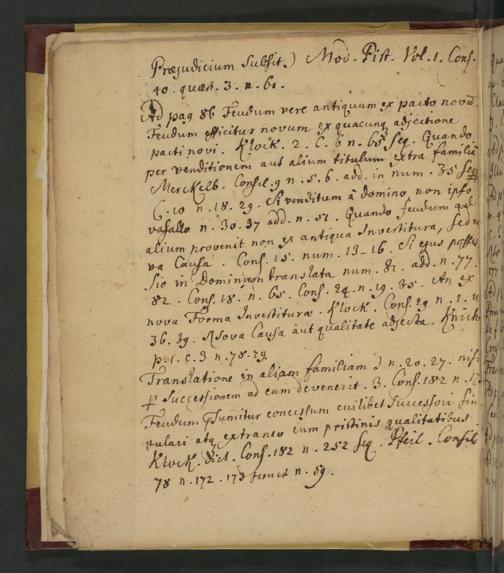 Præjudicium Subsit.) Mod. Pist. Vol. 1. Cons.
40. quæst. 3. n. 61.
Ad pag 86 Feudum vere antiquum ex pacto novo
Feudum efficitur novum ex quacunq adjectione
pacti novi. Klock. 2. C. 6 n. 65 seq. Quando
per venditionem aut alium titulum extra familia
Merckelb. Consil. 9 n. 5. 6. add. in num. 35 seq
C. 10 n. 18. 29. Si venditum à domino non ipso
vasallo n. 30. 37 add. n. 51. Quando feudum ad
alium provenit non ex antiqua Investitura, sed no
va Causa. Cons. 15. num. 13-16. Si ejus posses
sio in Dominum translata num. 81. add. n. 77.
82. Cons. 18. n. 65. Cons. 24. n. 19. 35. An ex
nova Forma Investitura. Klock. Cons. 29 n. 2.
36. 39. Nova Causa aut qualitate adjecta. Knich
p. 1. c. 3 n. 78. 79
Translatione in aliam familiam) n. 20. 27. nisi
p Successionem ad eum devenerit. 3. Cons. 182 n.
Feudum psumitur concessum cuilibet Successori sin
gulari atq extraneo cum pristinis qualitatibus
Klock. dict. Cons. 182 n. 252 sq. Pfeil. Consil
78 n. 172. 173 n. 59.